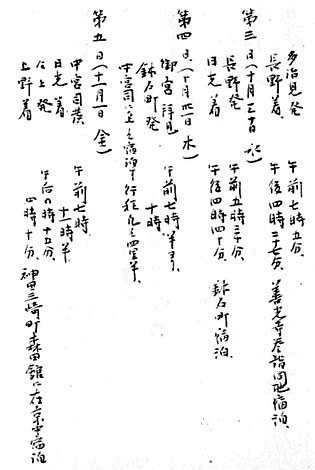 多治見発 午前七時五分、
長野着 午後四時二十七分、善光寺参詣同地宿泊、
第三日(十月三十日 水)
長野発 午前五時三十分、
日光着 午後四時四十分、鉢石町宿泊、
第四日(十月卅一日 木)
御宮拝見 午前七時半ヨリ、
鉢石町発 十時
中宮司ニ至ル宿泊ス行程凡ソ四里半、
第五日(十一月一日 金)
中宮司発 午前七時、
日光着 十一時半
仝上発 午后〇時十五分、
上野着 四時十分、神田三崎町森田館ニ在京中宿泊